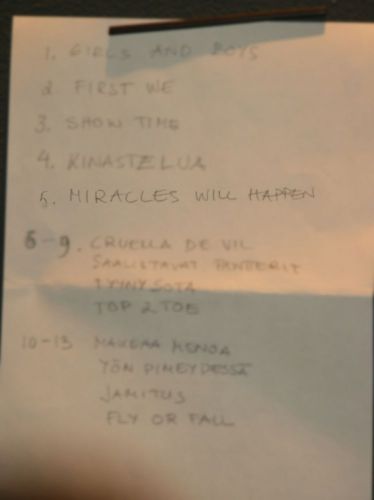 1. GIRLS AND BOYS
2. FIRST WE
3. SHOW TIME
4. KINASTELUA
5. MIRACLES WILL HAPPEN
6-9. CRUELLA DE VIL
SAALISTAVAT PANTTERIT
TYYNYSOTA
TOP 2 TOE
10-13 MAKEAA MENOA
YÖN PIMEYDESSÄ
JAMITUS
FLY OR FALL